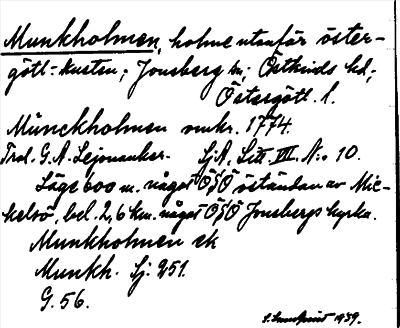 Munkholmen, holme utanför öster-
götl.-kusten; Jonsberg sn; Östkinds hd;
Östergötl. l.
Münckholmen omkr. 1774.
Trol. G. A. Lejonanker. SjA, Litt. VII. N:o 10.
Läge 600 m. något ÖSÖ östandan av Mic-
kelsö, bel. 2,6 km. något ÖSÖ Jonsbergs kyrka.
Munkholmen ek
Munkh. Sj. 251.
G. 56.
1939.